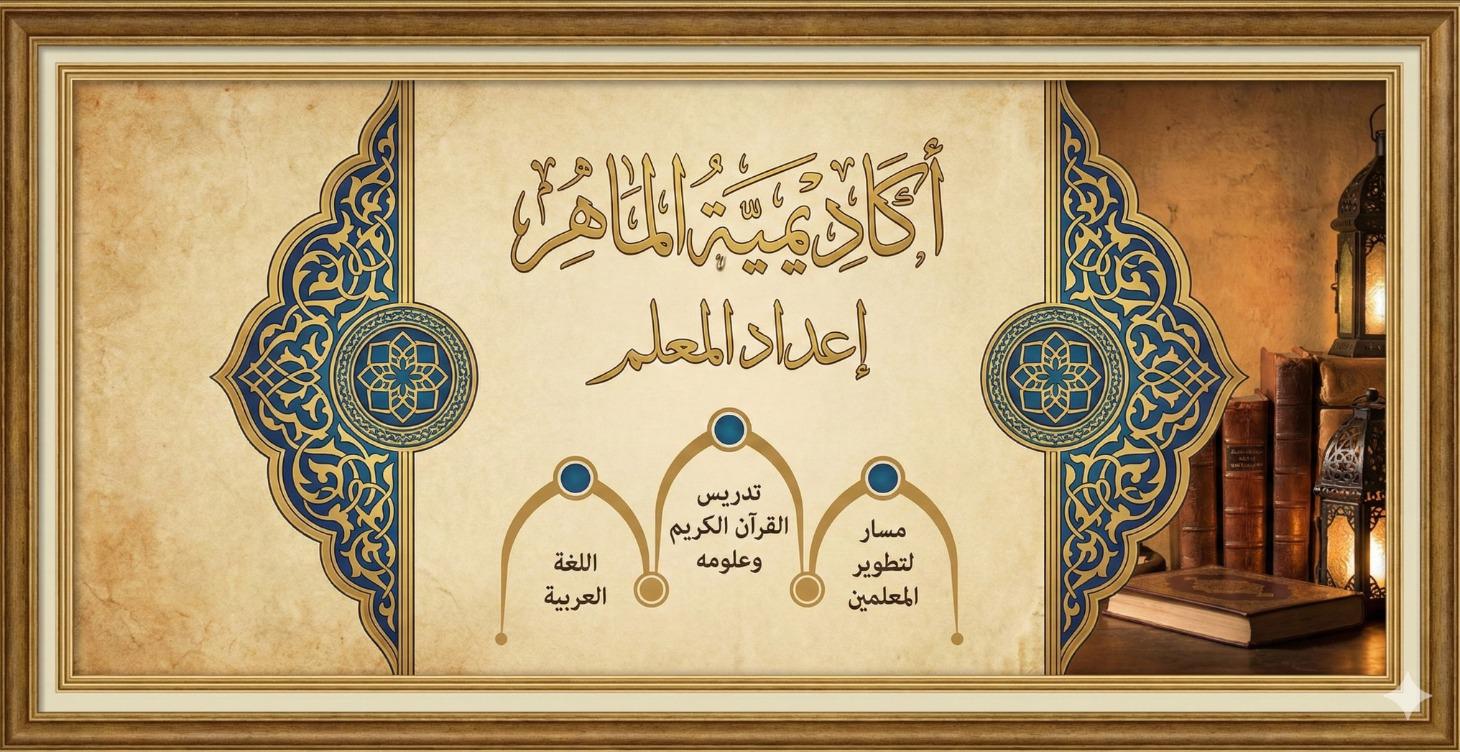 أَكَادِيمِيَّةُ المَاهِرِ
إعداد المعلم
مسار
لتطوير
المعلمين
تدريس
القرآن الكريم
وعلومه
اللغة
العربية